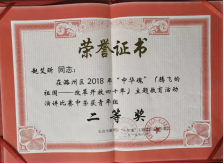 荣誉证书
同志：
在潞州区2018年“中华魂”（腾飞的
祖国——改革开放四十年）主题教育活动
演讲比赛中荣获青年组
二等奖